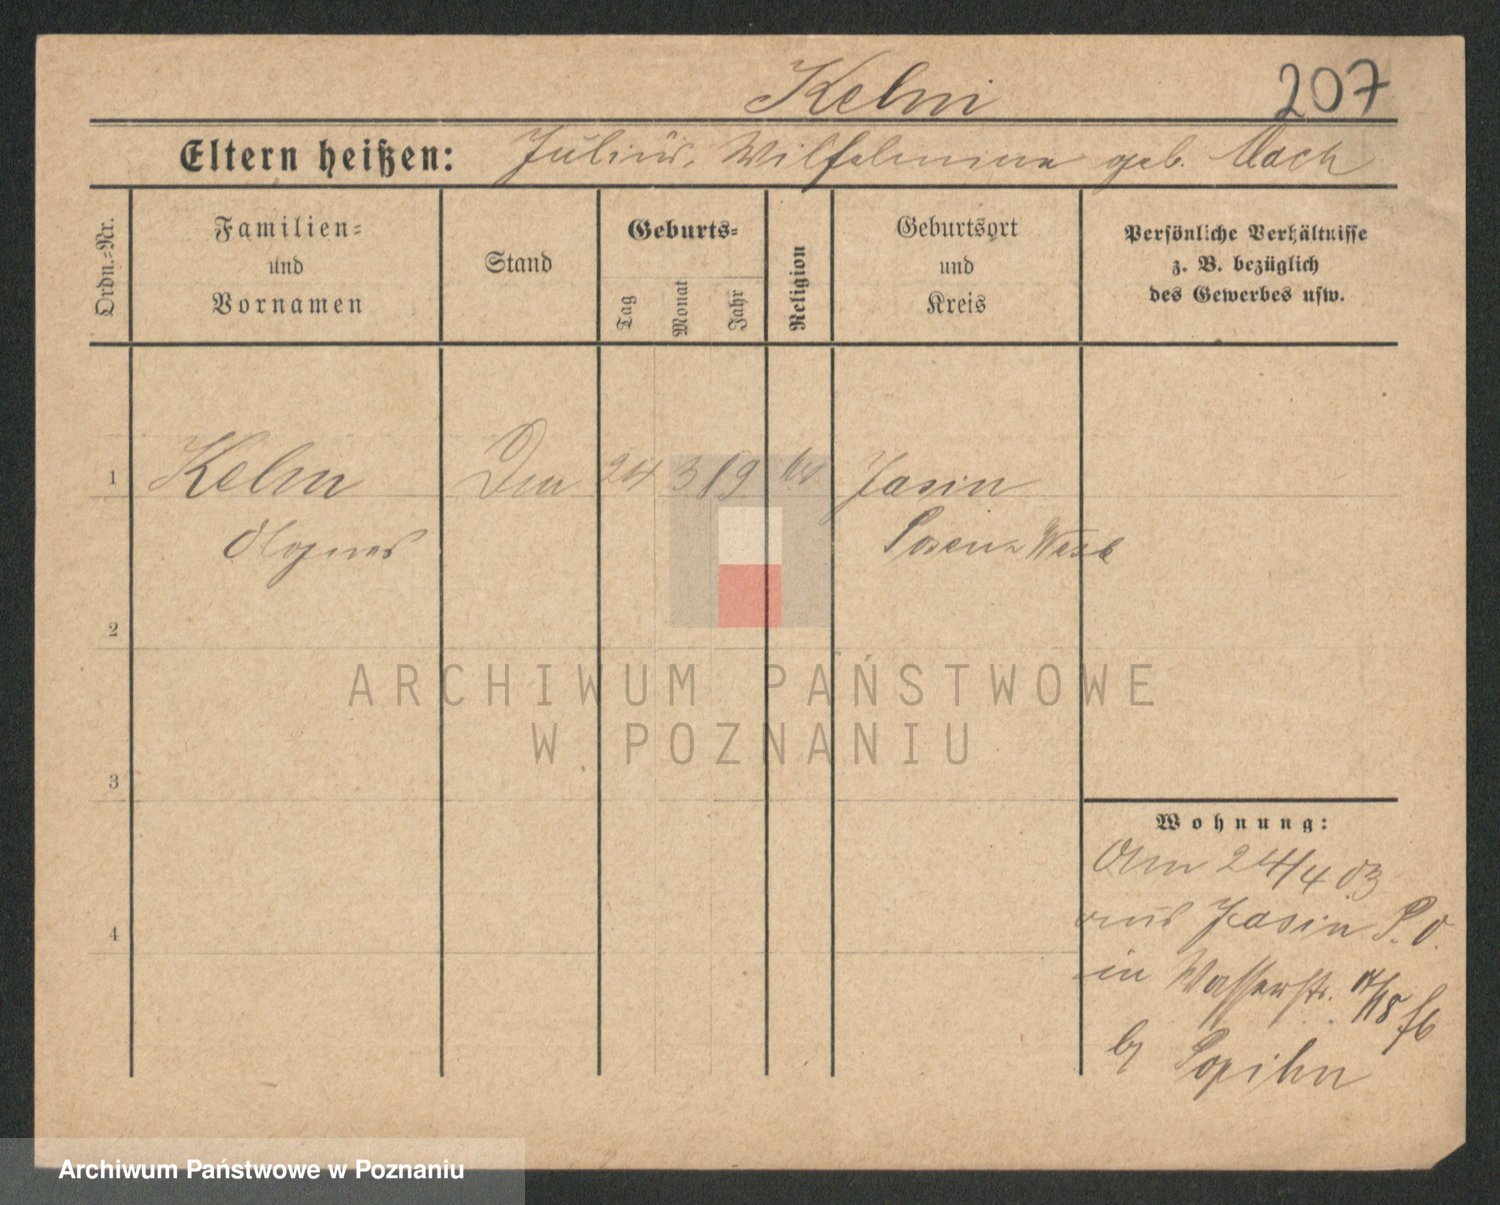 Kelm
207
Eltern heißen: Julius, Wilhelmine geb. Mach
Ordn.-Nr.
Familien-
und
Vornamen
Stand
Geburts-
Tag
Monat
Jahr
Religion
Geburtsort
und
Kreis
Persönliche Verhältnisse
z. B. bezüglich
des Gewerbes usw.
1 Kelm 24 3 19 Jasin
Agnes Posen West
2
3
4
Wohnung:
Am 24/4 03
aus Jasin P. O.
in Wasserstr.
b/
ARCHIWUM PAŃSTWOWE
W POZNANIU
Archiwum Państwowe w Poznaniu